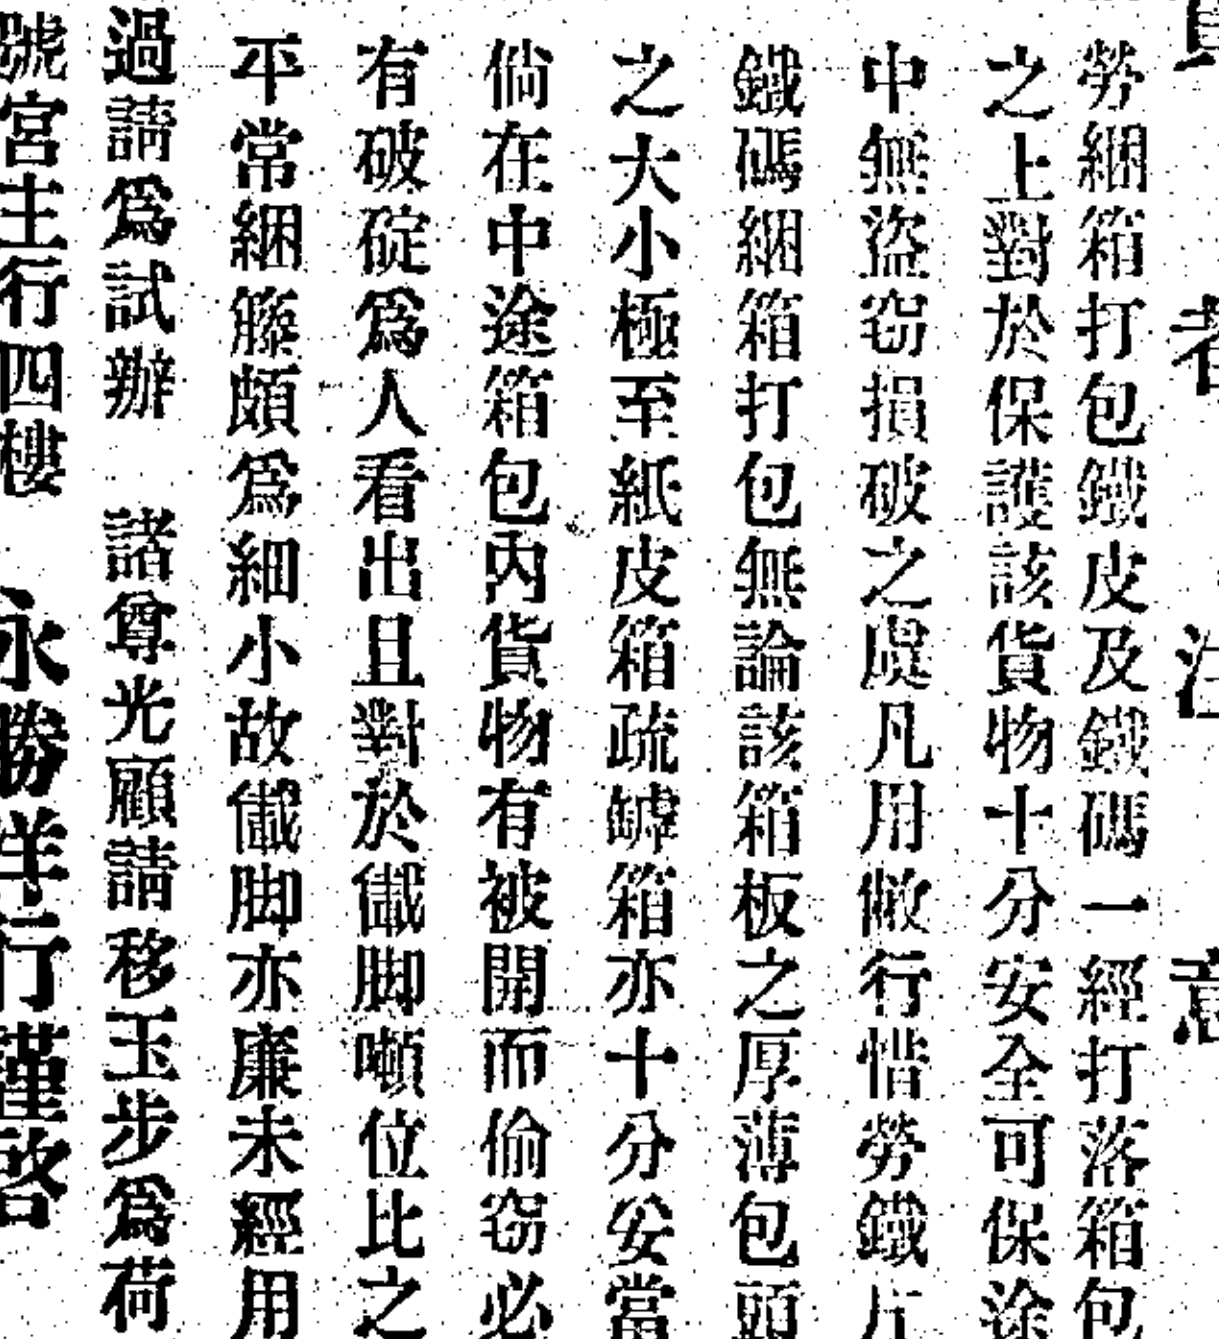 者注意
勞綑箱打包鐵皮及鐵碼一經打落箱包
之上對於保護該貨物十分安全可保途
中無盜窃損破之虞凡用敝行惜勞鐵片
鐵碼綑箱打包無論該箱板之厚薄包頭
之大小極至紙皮箱疏罅箱亦十分妥當
倘在中途箱包內貨物有被開而偷窃必
有破碇為人看出且對於儎脚噸位比之
平常綑籐頗為細小故儎脚亦廉未經用
過請為試辦 諸尊光顧請移玉步為荷
號宮主行四樓 永勝洋行謹啓